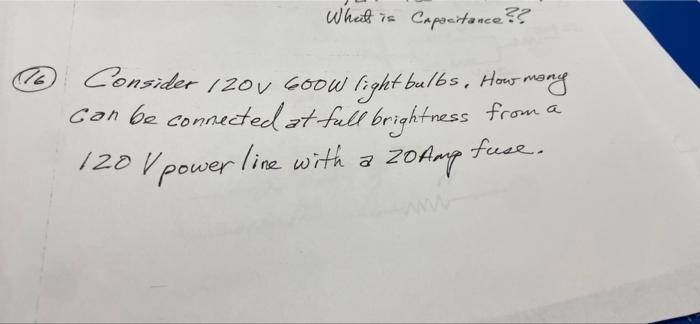 What is Capacitance??
16 Consider 120V 600W lightbulbs. How many
can be connected at full brightness from a
120 V power line with a 20Amp fuse.